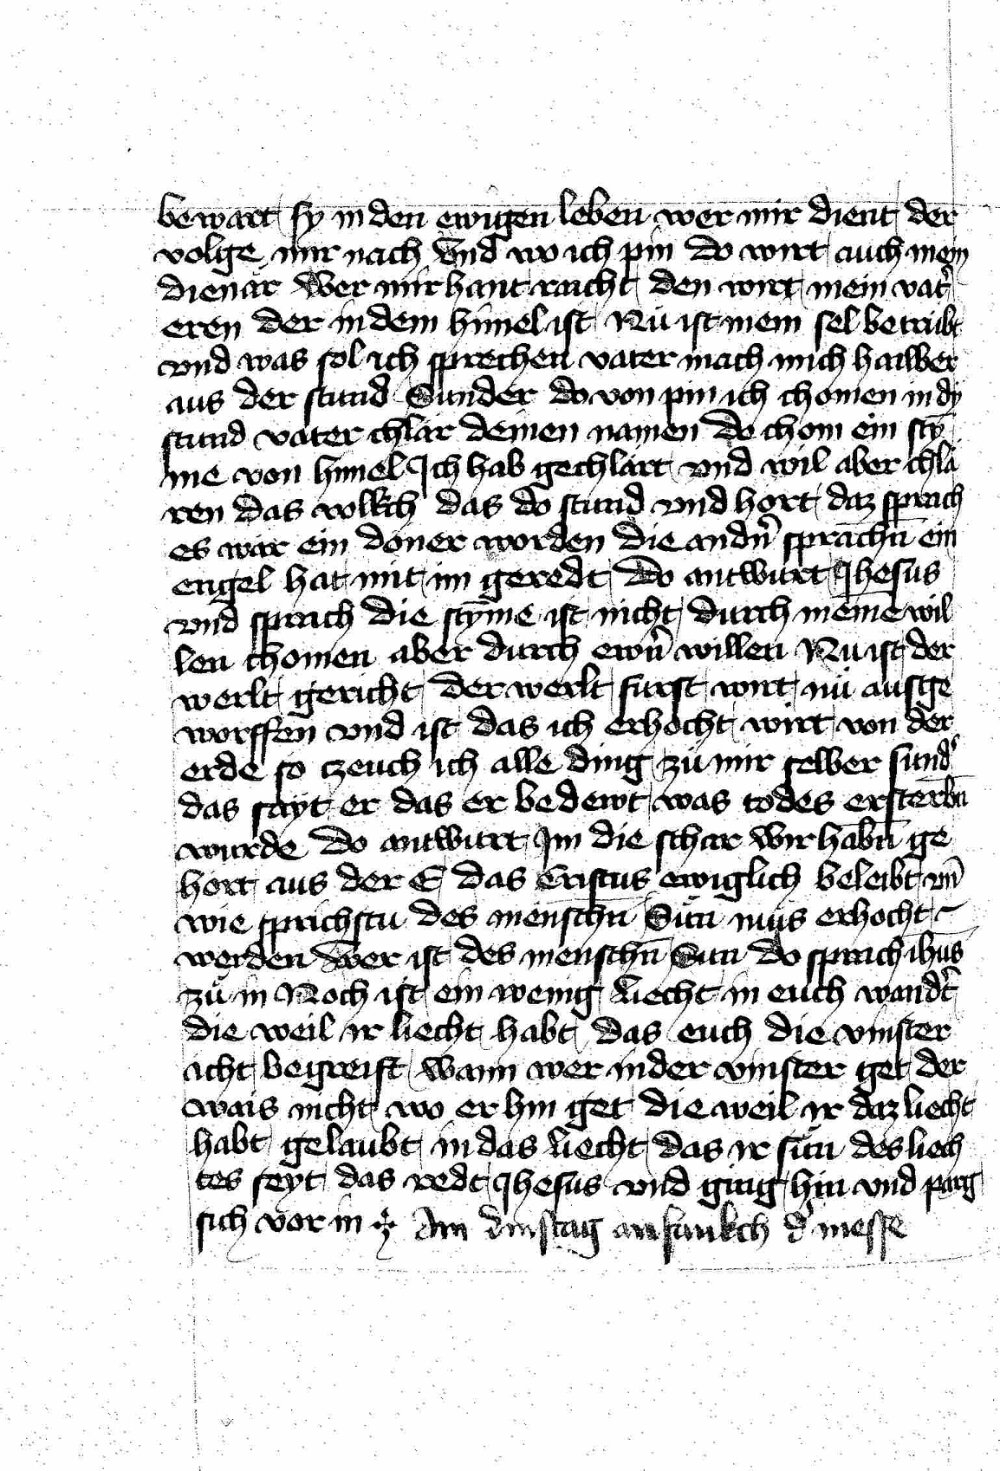 bewart sy in den ewigen leben wer mir dient der
volge mir nach Und wo ich pin do wirt auch mein
dienär Wer mir hant raicht den wirt mein vat̾
eren der in dem himel ist Nu ist mein sel betrübt
vnd was sol ich sprechen vater mach mich hailber
aus der stund Sunder do von pin ich chomen in dy
stund vater chlär deinen namen Do chom ein sty̅
me von himel Ich hab gechlärt vnd wil aber chlä
ren das volkch das do stund vnd hort daz sprach
es wär ein doner worden die andn̾ sprachn̅ ein
engel hat mit im geredt Do antwurt Jhesus
vnd sprach die sty̅me ist nicht durch meine wil
len chomen aber durch ewrn̾ willen Nu ist der
werlt gericht der werlt fürst wirt nü ausge
worffen vnd ist das ich erhöcht wirt von der
erde so czeuch ich alle ding zü mir selber sund̾
das sayt er das er bedewt was todes ersterbn̅
würde Do antwurt Im die schar Wir habn̅ ge
hört aus der E das Cristus ewiglich beleibt vn̅
wie sprichstu des menschn̅ Sün müs erhöcht
werden wer ist des menschn̅ Sun do sprach ihus̅
zü in Noch ist ein wenig liecht in euch wandt̾
die weil ir liecht habt das euch die vinster
icht begreift Wann wer in der vinster get der
wais nicht wo er hin get die weil ir daz liecht
habt gelaubt in das liecht das ir sün des liech
tes seyt das redt Jhesus vnd ging hin vnd parg
sich vor in Am dinstag anfankch d̾ messe